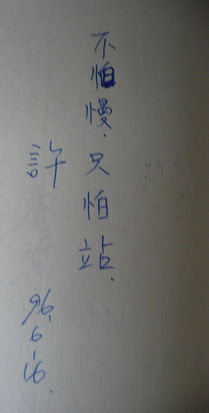 不怕慢.只怕站.
許
96.6.16.